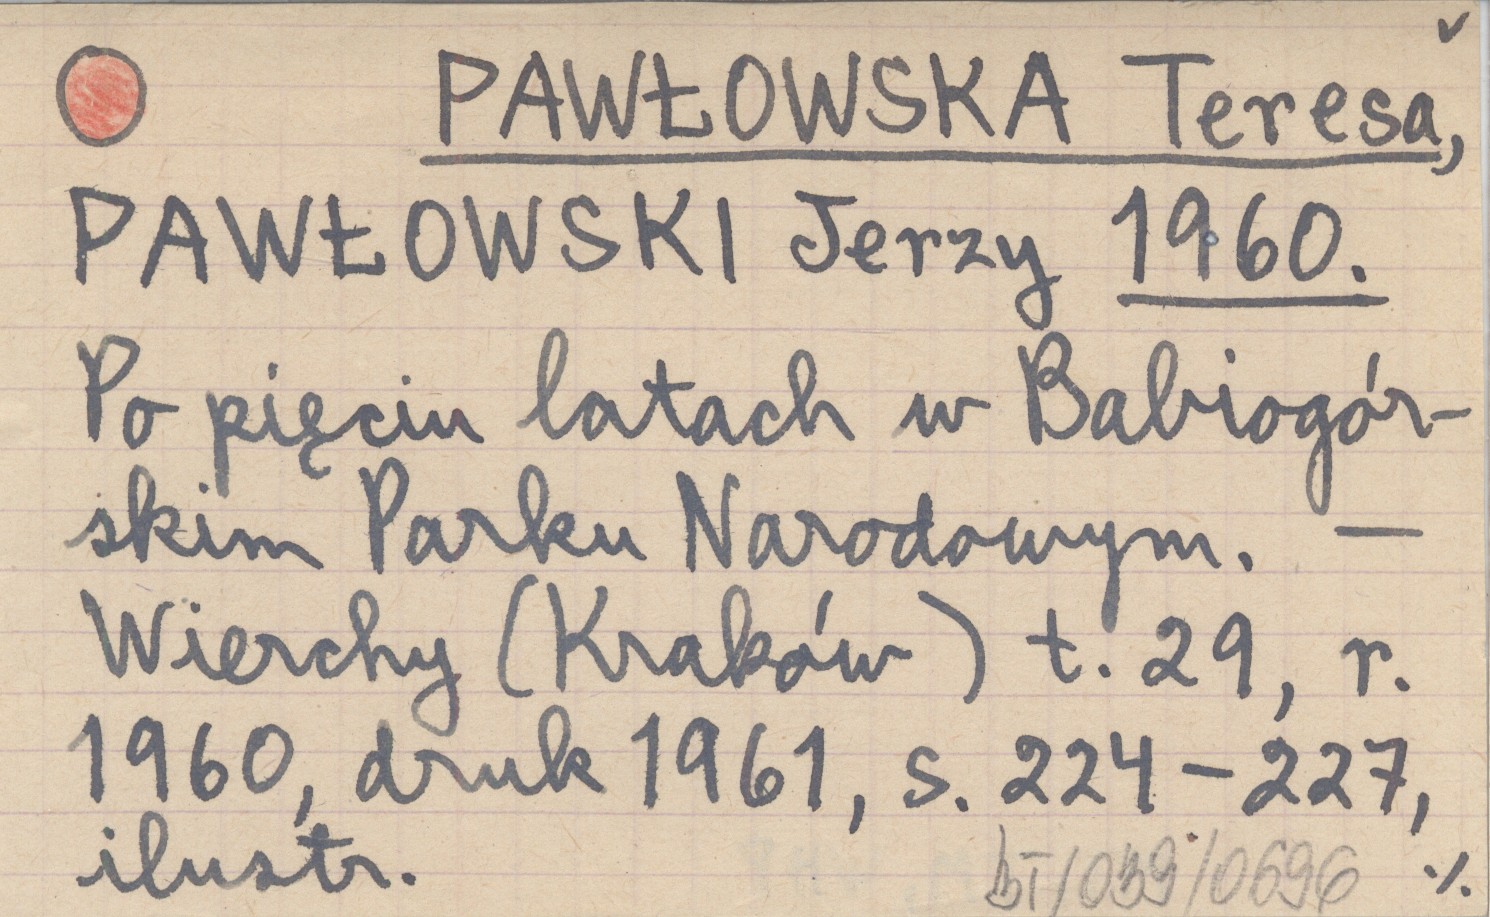 PAWŁOWSKA Teresa,
PAWŁOWSKI Jerzy 1960.
Po pięciu latach w Babiogór-
skim Parku Narodowym. —
Wierchy (Kraków) t. 29, r.
1960, druk 1961, s. 224-227,
ilustr.
/039/0696 ·/.